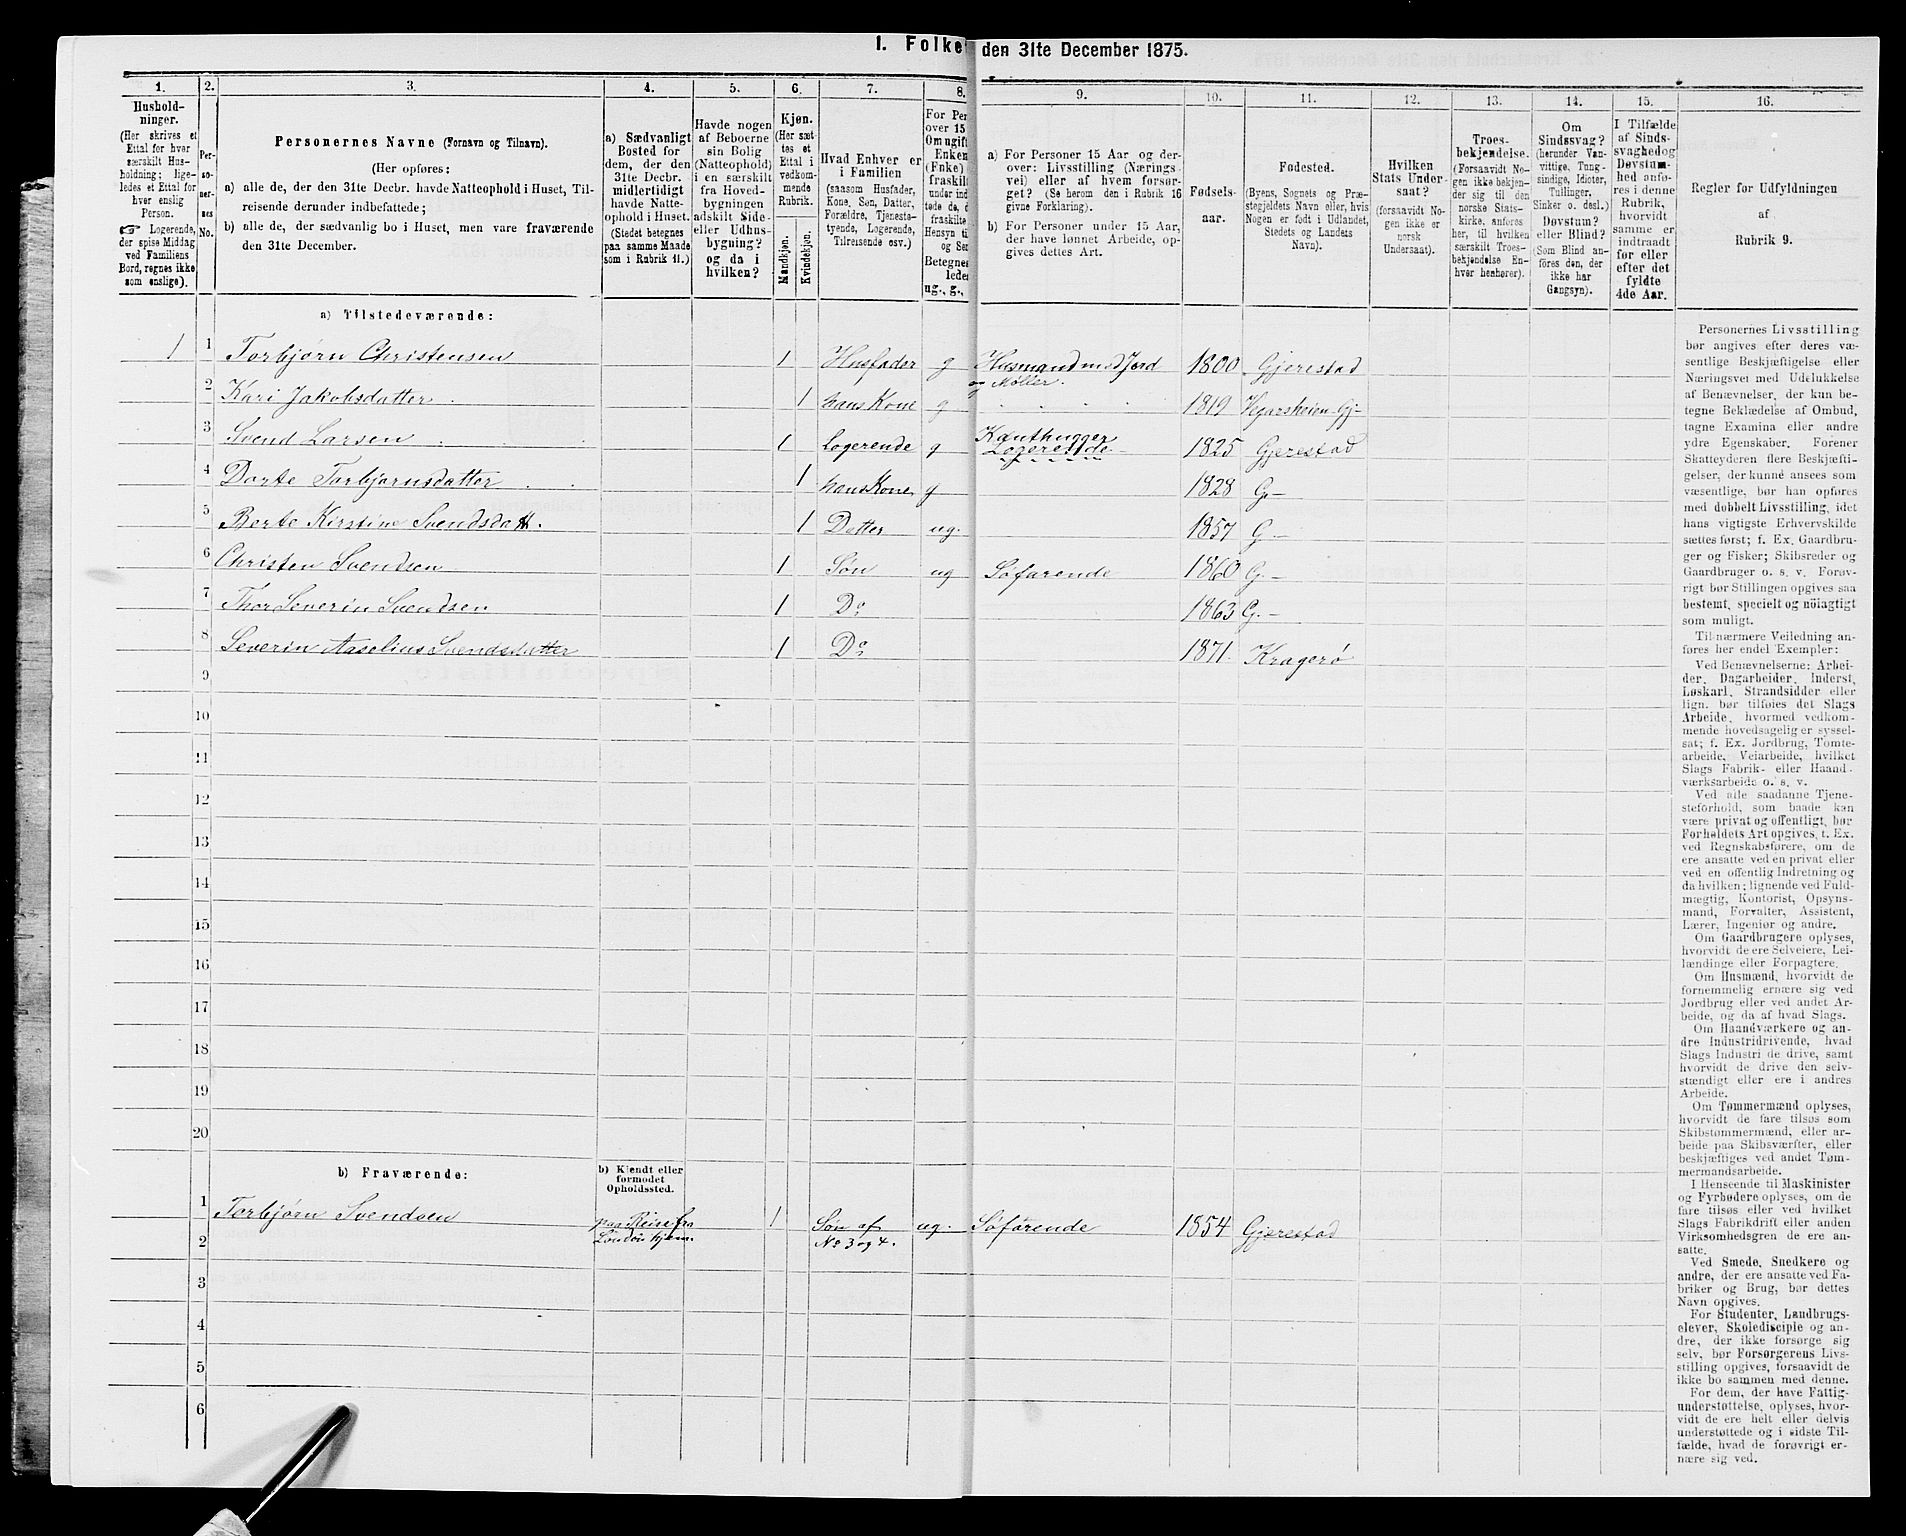 1. Folke den 31te December 1875.
1. 2. 3. 4. 5. 6. 7. 8. 9. 10. 11. 12. 13. 14. 15. 16.
Hushold-
ninger.
(Her skrives et
Ettal for hver
særskilt Hus-
holdning; lige-
ledes et Ettal for
hver enslig
Person.
☞ Logerende,
der spise Middag
ved Familiens
Bord, regnes ikke
som enslige).
Per-
so-
ner-
nes
No.
Personernes Navne (Fornavn og Tilnavn).
(Her opføres:
a) alle de, der den 31te Decbr. havde Natteophold i Huset, Til-
reisende derunder indbefattede;
b) alle de, der sædvanlig bo i Huset, men vare fraværende
den 31te December.
a) Sædvanligt
Bosted for
dem, der den
31te Decbr.
midlertidigt
havde Natte-
ophold i Huset.
(Stedet betegnes
paa samme Maade
som i Rubrik 11.)
Havde nogen
af Beboerne
sin Bolig
(Natteophold)
i en særskilt
fra Hoved-
bygningen
adskilt Side-
eller Udhus-
bygning?
og da i
hvilken?
Kjøn.
(Her sæt-
tes et
Ettal i
vedkom-
mende
Rubrik.
Mandkjøn.
Kvindekjøn.
Hvad Enhver er
i Familien
(saasom Husfader,
Kone, Søn, Datter,
Forældre, Tjeneste-
tyende, Logerende,
Tilreisende osv.)
For Per
over 15
Om ugift
Enken
(Enke)
fraskilt
under ind
tøde de, d
fraskilte
Hensyn til
og Se
Betegne
lede
ug., g.,
a) For Personer 15 Aar og der-
over: Livsstilling (Nærings-
vei) eller af hvem forsør-
get? (Se herom den i Rubrik 16
givne Forklaring).
b) For Personer under 15 Aar,
der have lønnet Arbeide, op-
gives dettes Art.
Fødsels-
aar.
Fødested.
(Byens, Sognets og Præ-
stegjeldets Navn eller, hvis
Nogen er født i Udlandet,
Stedets og Landets
Navn).
Hvilken
Stats Under-
saat?
(forsaavidt No-
gen ikke er
norsk
Undersaat).
Troes-
bekjendelse.
(Forsaavidt No-
gen ikke bekjen-
der sig til den
norske Stats-
kirke, anføres
her, til hvilken
særskilt Troes-
bekjendelse En-
hver henhører).
Om
Sindssvag?
(herunder Van-
vittige, Tung-
sindige, Idioter,
Tullinger,
Sinker o. desl.)
Døvstum?
eller Blind?
(Som Blind an-
føres den, der
ikke har
Gangsyn).
I Tilfælde
af Sinds-
svaghed og
Døvstum-
hed anfø-
res i denne
Rubrik,
hvorvidt
samme er
indtraadt
før eller
efter det
fyldte
4de Aar.
Regler for Udfyldningen
af
Rubrik 9.
a) Tilstedeværende:
1 1 Torbjørn Christensen 1 Husfader g Husmand med Jord og Møller. 1800 Gjerestad
2 Kari Jakobsdatter 1 hans Kone g 1819 Vegarsheien Gj-
3 Svend Larsen 1 Logerende g Kanthugger Logerende 1825 Gjerestad
4 Dorte Torbjørnsdatter 1 hans Kone g 1828 G.-
5 Berte Kirstine Svendsdatt. 1 Datter ug. 1857 G.-
6 Christen Svendsen 1 Søn ug Søfarende 1860 G.-
7 Thor Severin Svendsen 1 Do 1863 G.-
8 Severin Aaselius Svendsdatter 1 Do 1871. Kragerø
9
10
11
12
13
14
15
16
17
18
19
20
b) Fraværende:
b) Kjendt eller
formodet
Opholdssted.
1 Torbjørn Svendsen paa Reise fra London hjem. 1 Søn af No 3 og 4. ug. Søfarende 1854 Gjerestad
2
3
4
5
6
Personernes Livsstilling
bør angives efter deres væ-
sentlige Beskjæftigelse eller
Næringsvei med Udelukkelse
af Benævnelser, der kun be-
tegne Beklædelse af Ombud,
tagne Examina eller andre
ydre Egenskaber. Forener
Skatteyderen flere Beskjæfti-
gelser, der kunne ansees som
væsentlige, bør han opføres
med dobbelt Livsstilling, idet
hans vigtigste Erhvervskilde
sættes først; f. Ex. Gaardbru-
ger og Fisker; Skibsreder og
Gaardbruger o. s. v. Forøv-
rigt bør Stillingen opgives saa
bestemt, specielt og nøiagtigt
som muligt.
Til nærmere Veiledning an-
føres her endel Exempler:
Ved Benævnelserne: Arbei-
der, Dagarbeider, Inderst,
Løskarl, Strandsidder eller
lign. bør tilføies det Slags
Arbeide, hvormed vedkom-
mende hovedsagelig er syssel-
sat; f. Ex. Jordbrug, Tomte-
arbeide, Veiarbeide, hvilket
Slags Fabrik- eller Haand-
værksarbeide o. s. v.
Ved alle saadanne Tjene-
steforhold, som baade kan
være privat og offentligt, bør
Forholdets Art opgives, t. Ex.
ved Regnskabsførere, om de
ere ansatte ved en privat eller
ved en offentlig Indretning og
da hvilken; lignende ved Fuld-
mægtig, Kontorist, Opsyns-
mand, Forvalter, Assistent,
Lærer, Ingeniør og andre.
Om Gaardbrugere oplyses,
hvorvidt de ere Selveiere, Lei-
lændinge eller Forpagtere.
Om Husmænd, hvorvidt de
fornemmelig ernære sig ved
Jordbrug eller ved andet Ar-
beide, og da af hvad Slags.
Om Haandværkere og an-
dre Industridrivende, hvad
Slags Industri de drive, samt
hvorvidt de drive den selv-
stændigt eller ere i andres
Arbeide.
Om Tømmermænd oplyses,
hvorvidt de fare tilsøs som
Skibstømmermænd, eller ar-
beide paa Skibsværfter, eller
beskjæftiges ved andet Tøm-
mermandsarbeide.
I Henseende til Maskinister
og Fyrbødere oplyses, om de
fare tilsøs eller ved hvilket
Slags Fabrikdrift eller anden
Virksomhedsgren de ere an-
satte.
Ved Smede, Snedkere og
andre, der ere ansatte ved Fa-
briker og Brug, bør dettes
Navn opgives.
For Studenter, Landbrugs-
elever, Skoledisciple og an-
dre, der ikke forsørge sig
selv, bør Forsørgerens Livs-
stilling opgives, forsaavidt de
ikke bo sammen med denne.
For dem, der have Fattig-
understøttelse, oplyses, hvor-
vidt de ere helt eller delvis
understøttede og i sidste Til-
fælde, hvad de forøvrigt er-
nære sig ved.